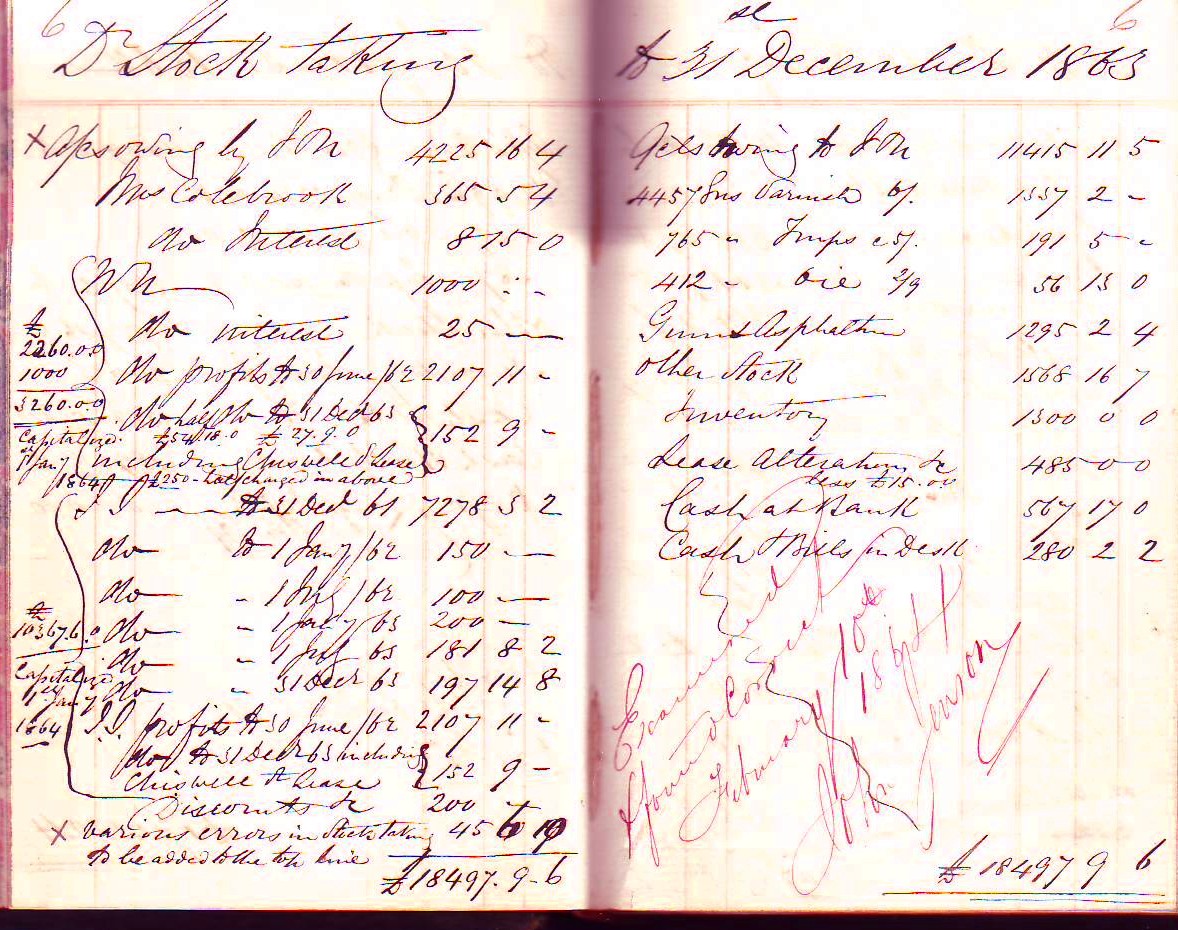 6
Dr Stock taking
× Accts owing by J & N 4225 16 4
Mrs Colebrook 365 5 4
do Interest 8 15 0
W N 1000 - -
do interest 25 —
£
2260.0.0
1000
3260.0.0
Capitalized
1st Jany
1864
do profits to 30 June/62 2107 11 -
do half do to 31 Decr 63 152 9 -
£54.18.0 £27.9.0
including Chiswell St Lease
£250 - half charged in above
J J — to 31 Decr 61 7278 3 2
do to 1 Jany/62 150 —
do " 1 July/62 100 —
do " 1 Jany 63 200 —
do " 1 July 63 181 8 2
do " 31 Decr 63 197 14 8
£
10367.6.0
Capitalized
1st Jany
1864
J.J. profits to 30 June/62 2107 11 -
do to 31 Decr 63 including
Chiswell St Lease 152 9 -
Discounts &c 200
× various errors in Stock taking 45 6 10
to be added to the top line
£18497.9-6
6
to 31st December 1863
Accts owing to J & N 11415 11 5
4457 Gns Varnish 6/. 1337 2 -
765 " Turps @ 5/. 191 5 -
412 " Oil 2/9 56 13 0
Gum & Asphaltum 1295 2 4
Other Stock 1568 16 7
Inventory 1300 0 0
Lease Alterations &c 485 0 0
less £15.0.0
Cash at Bank 567 17 0
Cash & Bills in Desk 280 2 2
Examined
& found Correct
February 10th
1864
John Jenson
£18497 9 6